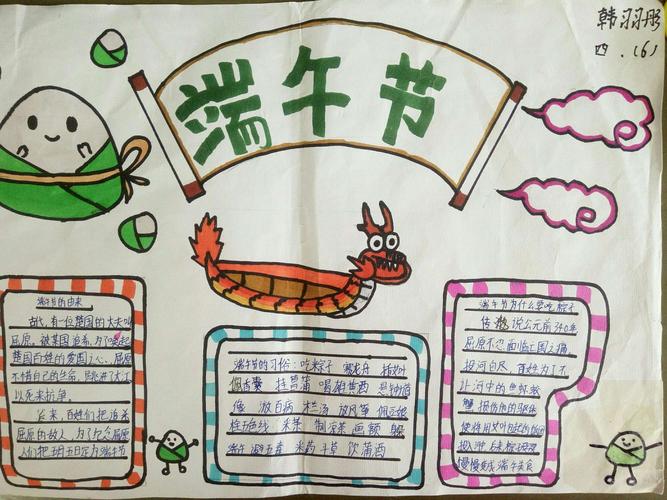 韩羽彤
四.(6)
端午节
端午节的由来
古代,有一位楚国的大夫叫
屈原,被某国追着,为了唤起
楚国百姓的爱国之心,屈原
不惜自己的生命,跳进了大江
以死来抗争。
后来,百姓们把追杀
屈原的敌人,为了纪念屈原
人们把五月五日定为端午节
端午节的习俗:吃粽子 赛龙舟 插艾叶
佩香囊 挂菖蒲 喝雄黄酒 悬钟馗
像 放白病 木兰汤 放风筝 佩豆娘
拴五色线 米茶 制凉茶 画额 躲
端午 避五毒 采药 斗草 饮蒲酒
端午节为什么要吃粽子
传说公元前340年
屈原不忍面临亡国之痛
投河自尽,百姓为了不
让河中的鱼虾蚊
蟹损伤他的躯体
使将用艾叶包成的饭团
投入
慢慢变成端午美食